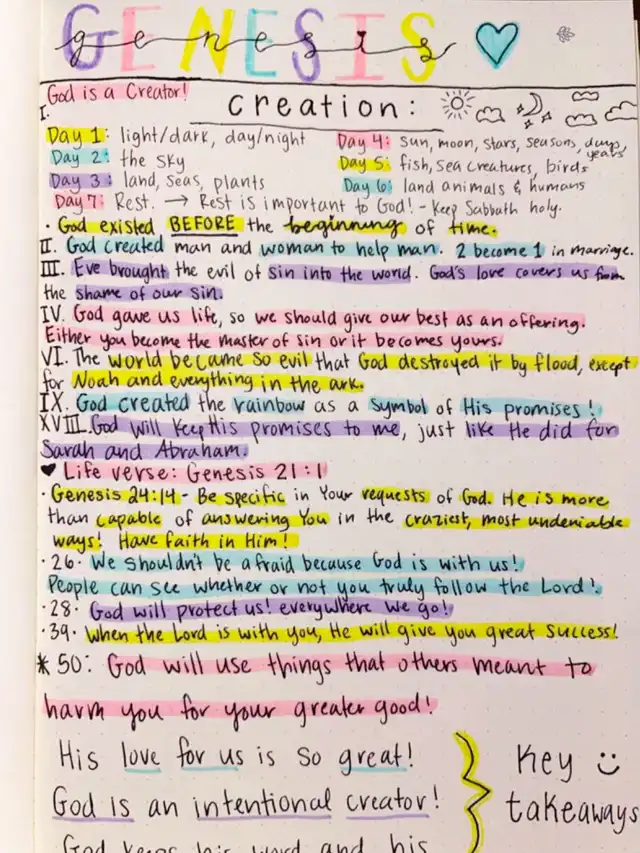 GENESIS
genesis
God is a Creator!
I.
Creation:
Day 1: light/dark, day/night
Day 2: the sky
Day 3: land, seas, plants
Day 4: sun, moon, stars, seasons, days, years
Day 5: fish, sea creatures, birds
Day 6: land animals & humans
Day 7: Rest. → Rest is important to God! - Keep Sabbath holy.
· God existed BEFORE the beginning of time.
II. God created man and woman to help man. 2 become 1 in marriage.
III. Eve brought the evil of sin into the world. God's love covers us from
the shame of our sin.
IV. God gave us life, so we should give our best as an offering.
Either you become the master of sin or it becomes yours.
VI. The world became so evil that God destroyed it by flood, except
for Noah and everything in the ark.
IX. God created the rainbow as a symbol of His promises!
XVIII. God will keep His promises to me, just like He did for
Sarah and Abraham.
♥ Life verse: Genesis 21:1
· Genesis 24:14 - Be specific in your requests of God. He is more
than capable of answering You in the craziest, most undeniable
ways! Have faith in Him!
· 26. We shouldn't be afraid because God is with us!
People can see whether or not you truly follow the Lord!
· 28. God will protect us! everywhere we go!
· 39. When the Lord is with you, He will give you great success!
* 50: God will use things that others meant to
harm you for your greater good!
His love for us is so great!
God is an intentional creator!
God keeps his word and his
Key :)
takeaways